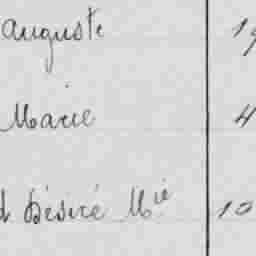 Auguste 19
Marie 4
d Désiré Mié 10